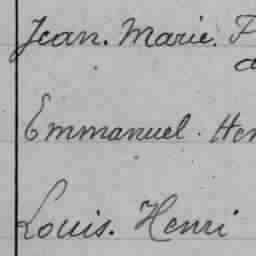 Jean. Marie.
Emmanuel. Hen
Louis. Henri